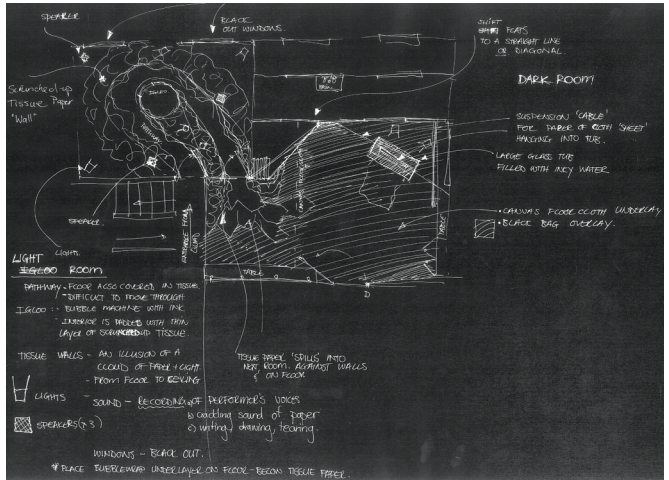 SPEAKER
BLACK
OUT WINDOWS.
SHIFT
FLATS
TO A STRAIGHT LINE
OR DIAGONAL.
DARK ROOM
Scrunched-up
Tissue Paper
"Wall"
IGLOO
PATHWAY
SUSPENSION 'CABLE'
FOR PAPER OR CLOTH 'SHEET'
HANGING INTO TUB.
LARGE GLASS TUB
FILLED WITH INKY WATER
• CANVAS FLOOR CLOTH UNDERLAY
• BLACK BAG OVERLAY.
SPEAKER
LIGHTS.
ENTRANCE FROM
TABLE
TABLE
D
LIGHT
IGLOO ROOM
PATHWAY - FLOOR ALSO COVERED IN TISSUE.
- DIFFICULT TO MOVE THROUGH
IGLOO :- BUBBLE MACHINE WITH INK
- INTERIOR IS PADDED WITH THIN
LAYER OF SCRUNCHED UP TISSUE.
TISSUE WALLS - AN ILLUSION OF A
CLOUD OF PAPER + LIGHT
- FROM FLOOR TO CEILING
TISSUE PAPER 'SPILLS' INTO
NEXT ROOM. AGAINST WALLS
& ON FLOOR
LIGHTS
SPEAKERS (x3)
- SOUND - RECORDING OF PERFORMER'S VOICES
b) crackling sound of paper
c) writing, drawing, tearing.
WINDOWS - BLACK OUT.
* PLACE BUBBLEWRAP UNDERLAYER ON FLOOR - BELOW TISSUE PAPER.